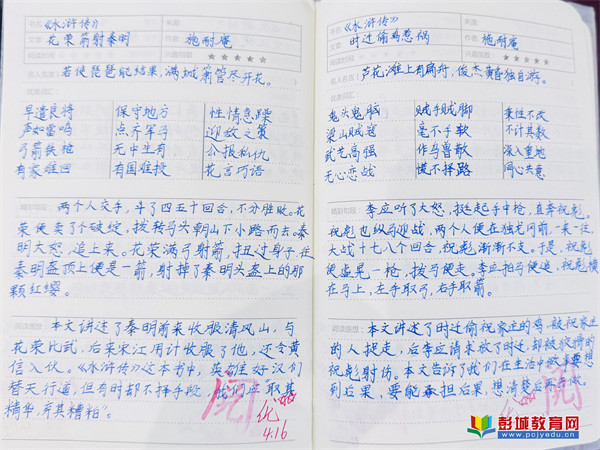 书名《水浒传》
文章 花荣箭射秦明 作者 施耐庵
阅读时间 兴趣指数 ★★★★★
名人名言 若使琵琶能结果，满城箫管尽开花。
优美词汇：
早遣良将 保守地方 性情急躁
声如雷鸣 点齐军马 迎敌之策
弓箭铁枪 无中生有 公报私仇
有家难回 有国难投 花言巧语
精彩句段： 两个人交手，斗了四五十回合，不分胜败。花
荣便卖了个破绽，拨转马头朝山下小路而去。秦
明大怒，追上来。花荣满弓射箭，扭过身子，往
秦明盔顶上便是一箭，射掉了秦明头盔上的那
颗红缨。
阅读感想： 本文讲述了秦明前来收服清风山，与
花荣比武，后来宋江用计收服了他，还令黄
信入伙。《水浒传》这本书中，英雄好汉们
替天行道，但有时都不择手段，我们应"取其
精华，弃其糟粕"。
阅
优
4.16
书名《水浒传》
文章 时迁偷鸡惹祸 作者 施耐庵
阅读时间 兴趣指数 ★★★★★
名人名言 芦花滩上有扁舟，俊杰黄昏独自游。
优美词汇：
兔头鬼脑 贼手贼脚 秉性不改
梁山贼寇 毫不手软 不计其数
武艺高强 作鸟兽散 深入重地
无心恋战 慌不择路 同心共意
精彩句段： 李应听了大怒，挺起手中枪，直奔祝彪。
祝彪也纵马迎战，两个人便在独龙冈前，一来一往，
大战十七八个回合，祝彪渐渐不支。于是，祝彪
便虚晃一枪，拨马便走。李应拍马便追，祝彪横
在马上，左手取弓，右手取箭。
阅读感想： 本文讲述了时迁偷祝家庄的鸡，被祝家庄
的人捉走，后李应请求放了时迁，却被狡猾的
祝彪射伤。本文告诉了我们在生活中做事要想
到后果，要能承担后果，想清楚后再去做。
阅
优
彭城教育网
www.pcjyedu.cn